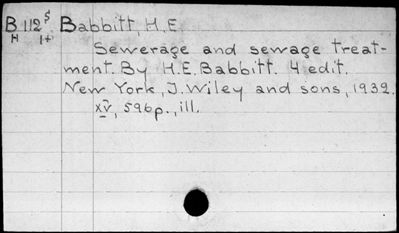 B 112 S Babbitt, H.E.
H 1+
Sewerage and sewage treat-
ment. By H.E. Babbitt. 4 edit.
New York, J. Wiley and sons, 1932.
xv, 596p., ill.